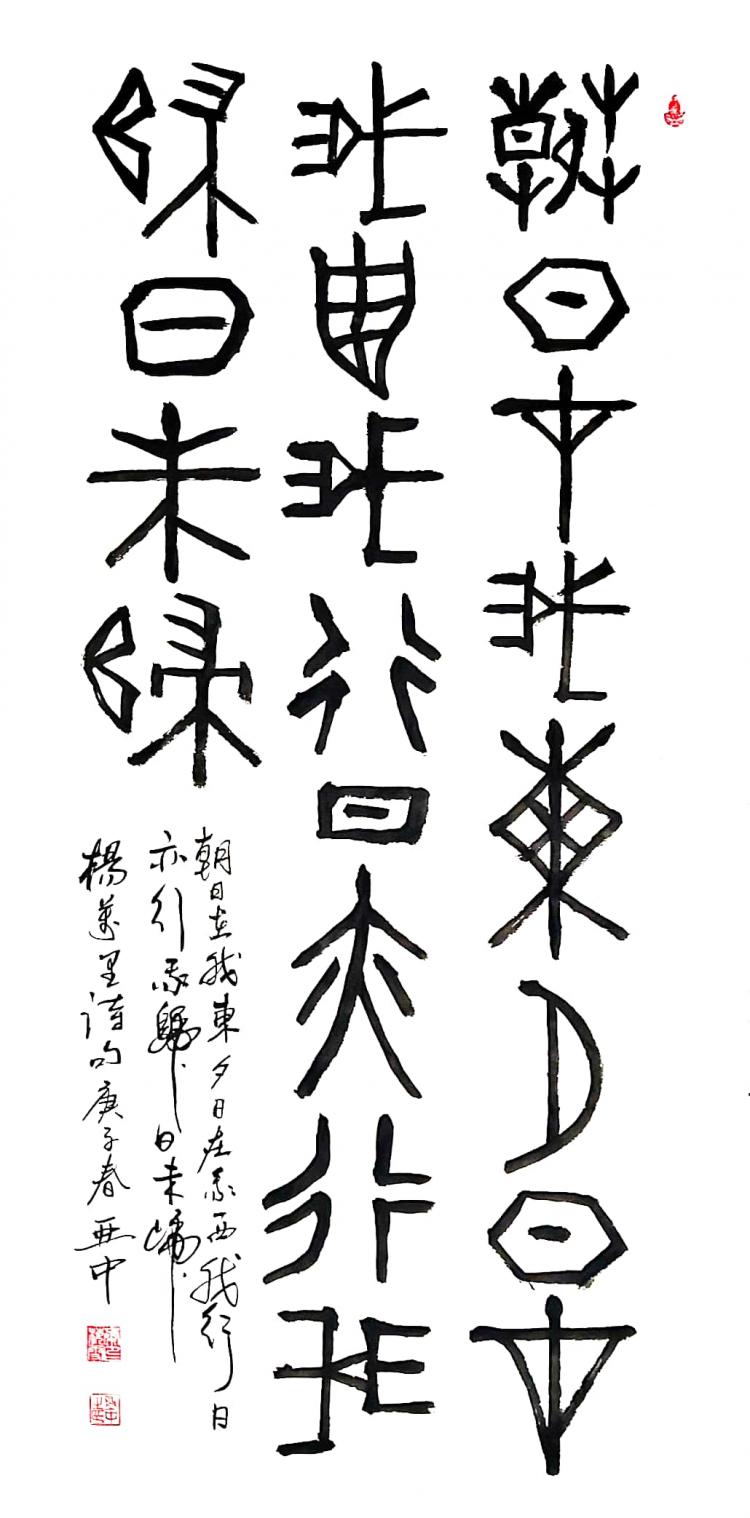 朝日在我東夕日在
我西我行日亦行我
歸日未歸
朝日在我東夕日在我西我行日
亦行我歸日未歸
楊萬里詩句庚子春亞中